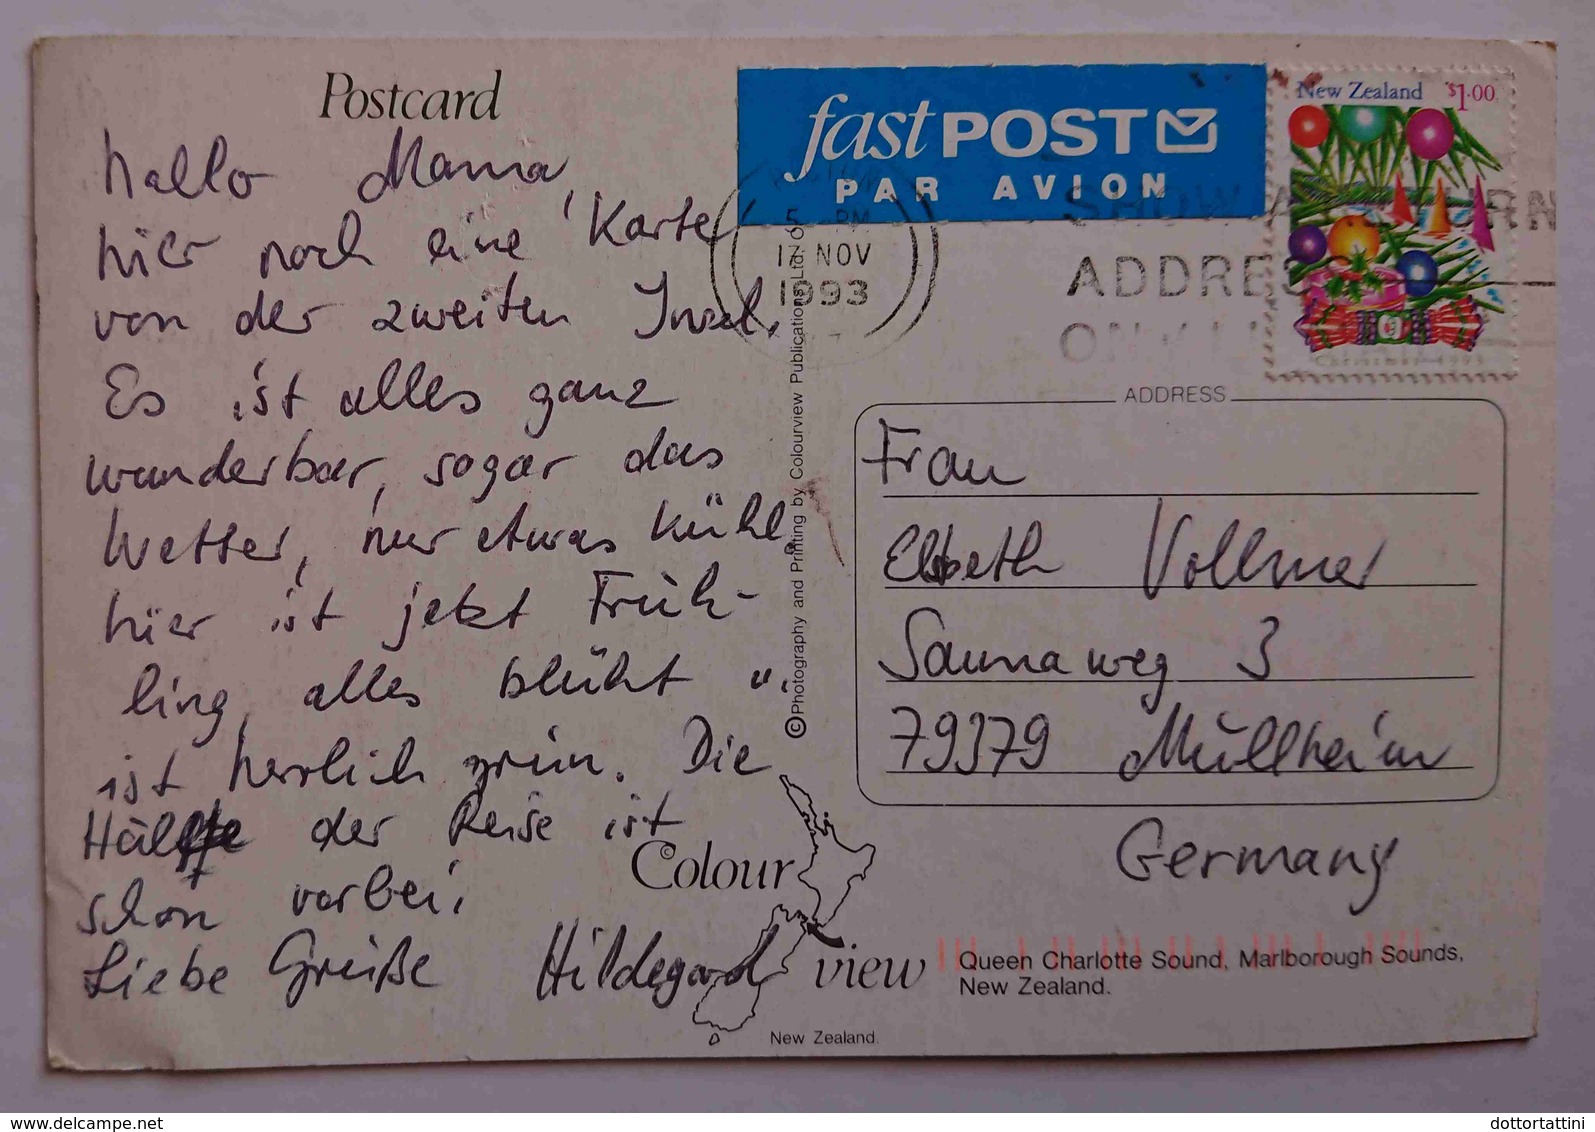 Postcard
hallo Mama,
hier noch eine Karte
von der zweiten Insel.
Es ist alles ganz
wunderbar, sogar das
Wetter, nur etwas kühl,
hier ist jetzt Früh-
ling, alles blüht u.
ist herrlich grün. Die
Hälfte der Reise ist
schon vorbei.
Liebe Grüße Hildegard
fastPOST
PAR AVION
5 PM
17 NOV
1993
New Zealand $1.00
ADDRESS
©Photography and Printing by Colourview Publications Ltd.
ADDRESS
Frau
Elsbeth Vollmer
Saunaweg 3
79379 Müllheim
Germany
©Colour view
New Zealand.
Queen Charlotte Sound, Marlborough Sounds,
New Zealand.
www.delcampe.net
dottortattini